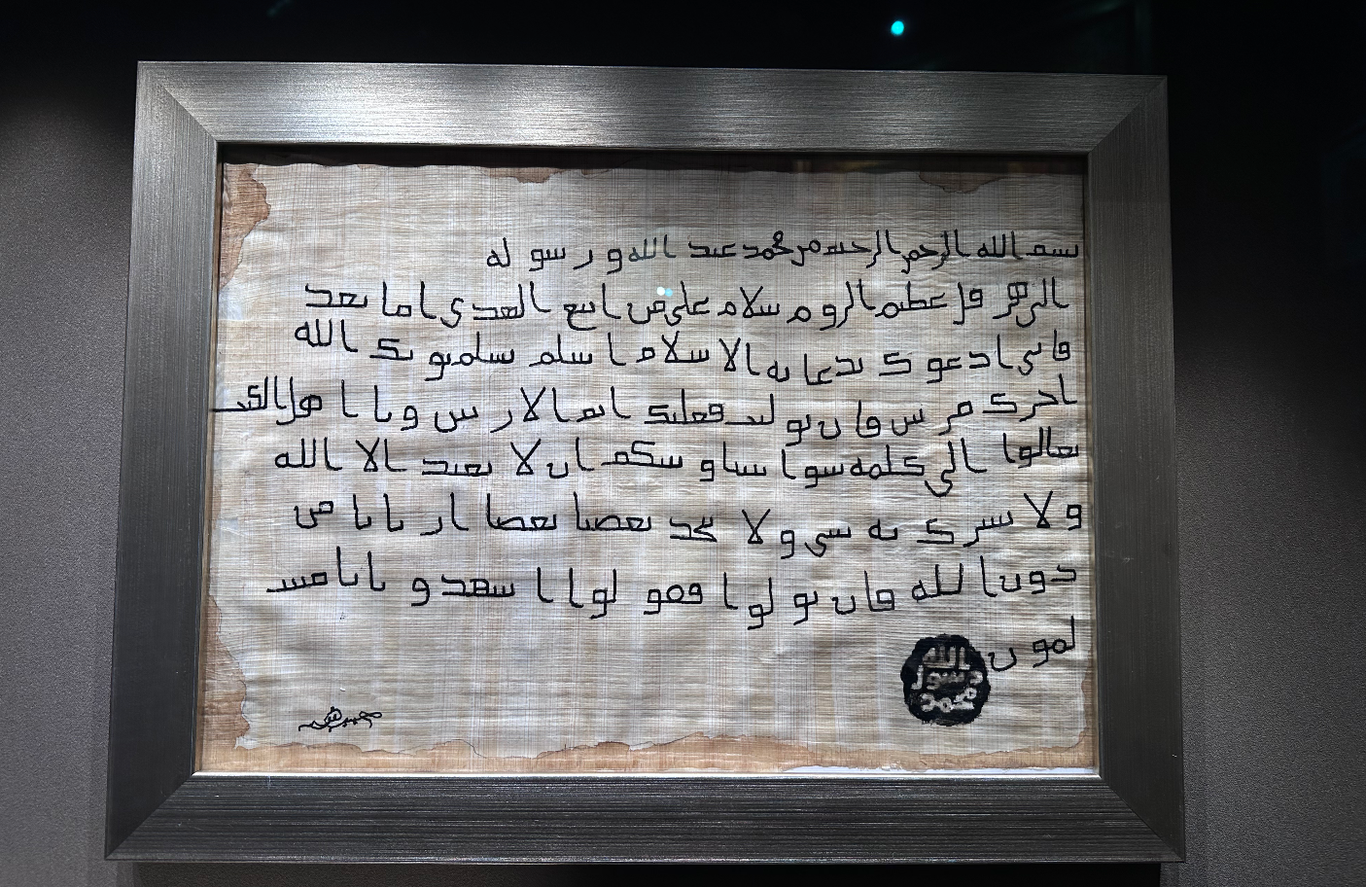 بسم الله الرحمن الرحيم من محمد عبد الله و رسوله
الى هرقل عظيم الروم سلام على من اتبع الهدى اما بعد
فانى ادعوك بدعاية الاسلام اسلم تسلم يوتك الله
اجرك مرتين فان توليت فعليك اثم الاريسين ويا اهل الكتب
تعالوا الى كلمة سوا بيننا وبينكم ان لا نعبد الا الله
ولا نشرك به شى ولا يتخذ بعضنا بعضا اربابا من
دون الله فان تولوا فقولوا اشهدو بانا مسـ
لمون
الله
رسول
محمد